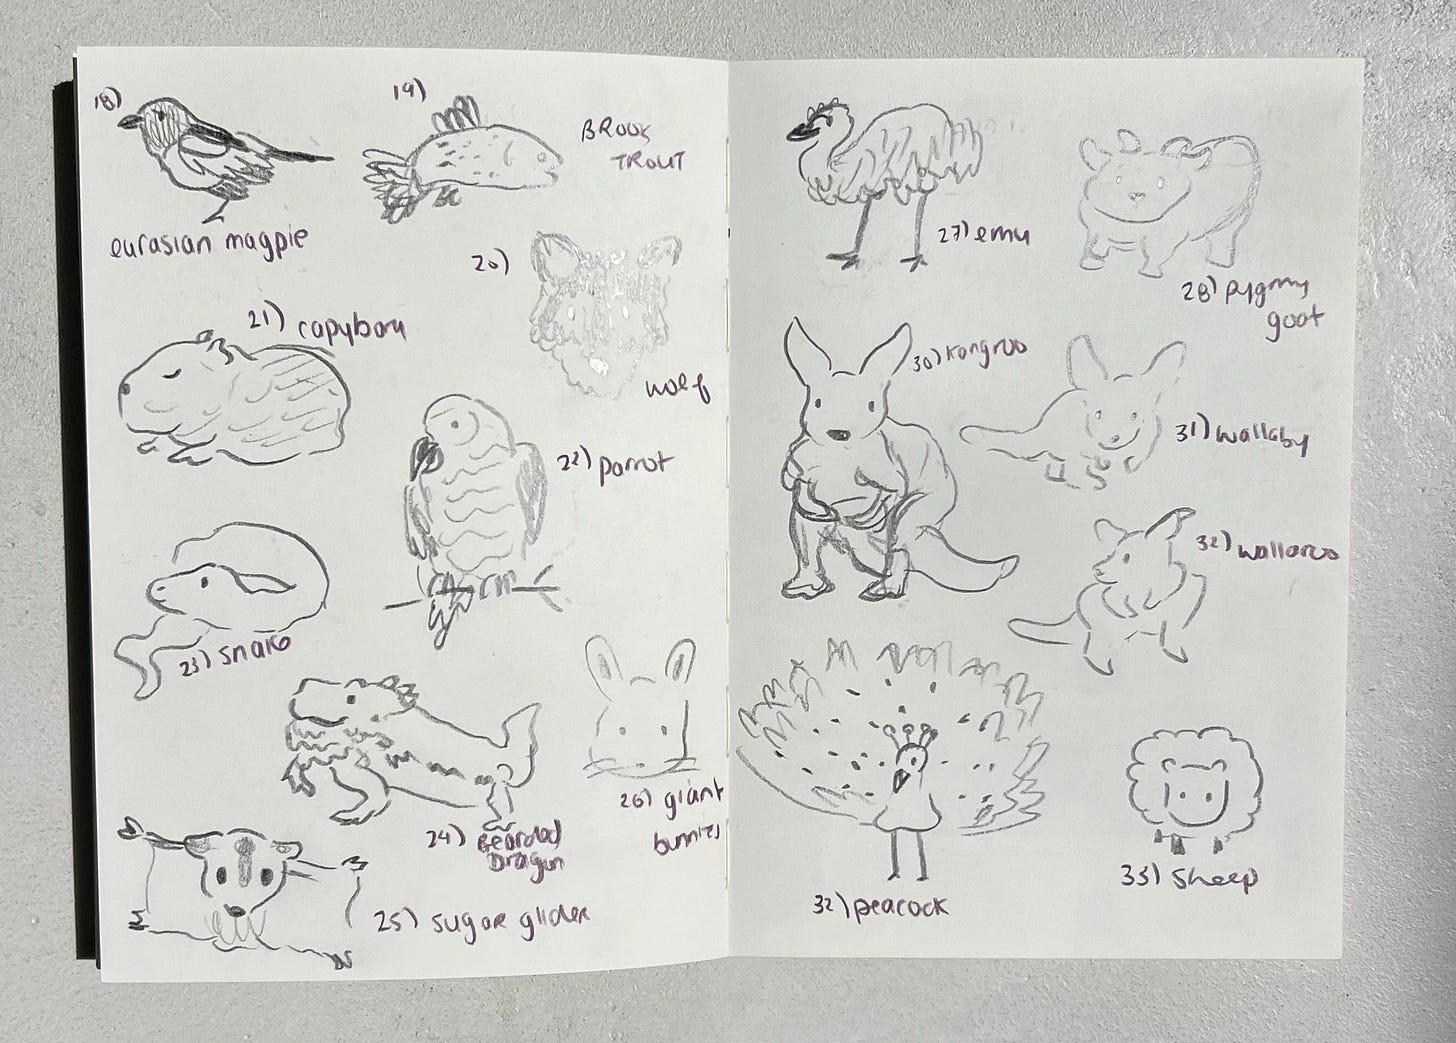 18)
eurasian magpie
19)
BROOK
TROUT
20)
wolf
21) capybara
22) parrot
23) snake
24) Bearded
Dragon
25) sugar glider
26) giant
bunnies
27) emu
28) pygmy
goat
30) kangroo
31) wallaby
32) wallaroo
32) peacock
33) sheep